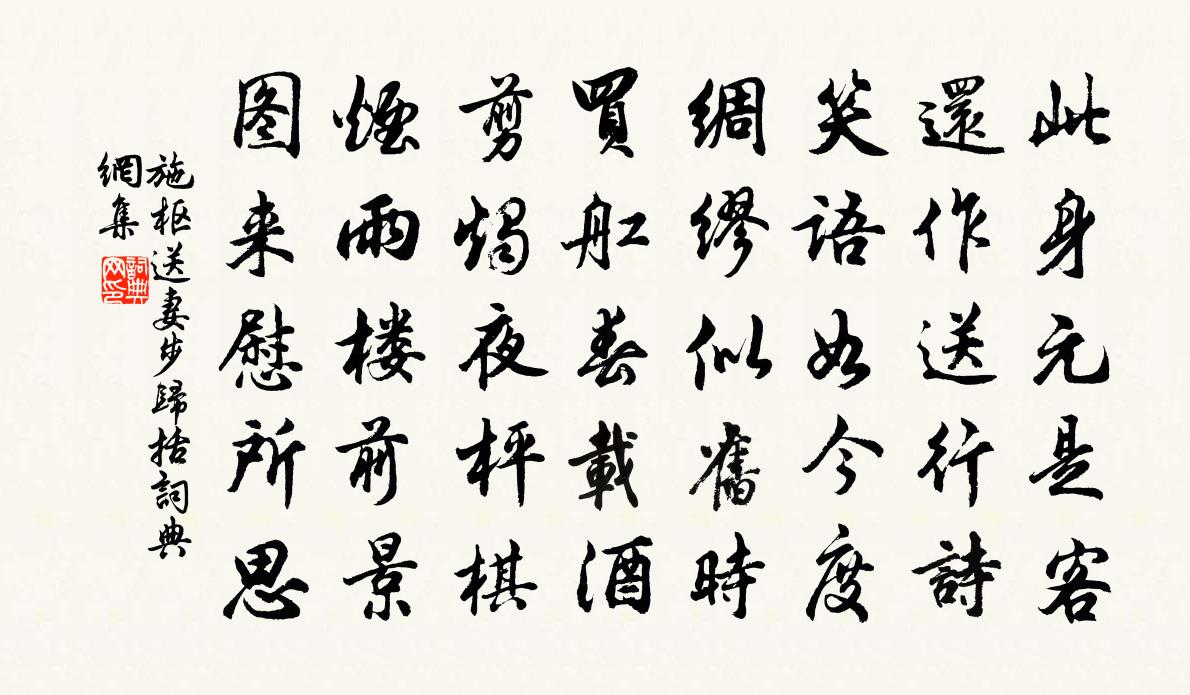 此身元是客
還作送行詩
笑語如今度
綢繆似舊時
買舡春載酒
剪燭夜枰棋
煙雨楼前景
图来慰所思
施枢送妻步歸括詞典
網集
詞典
网印